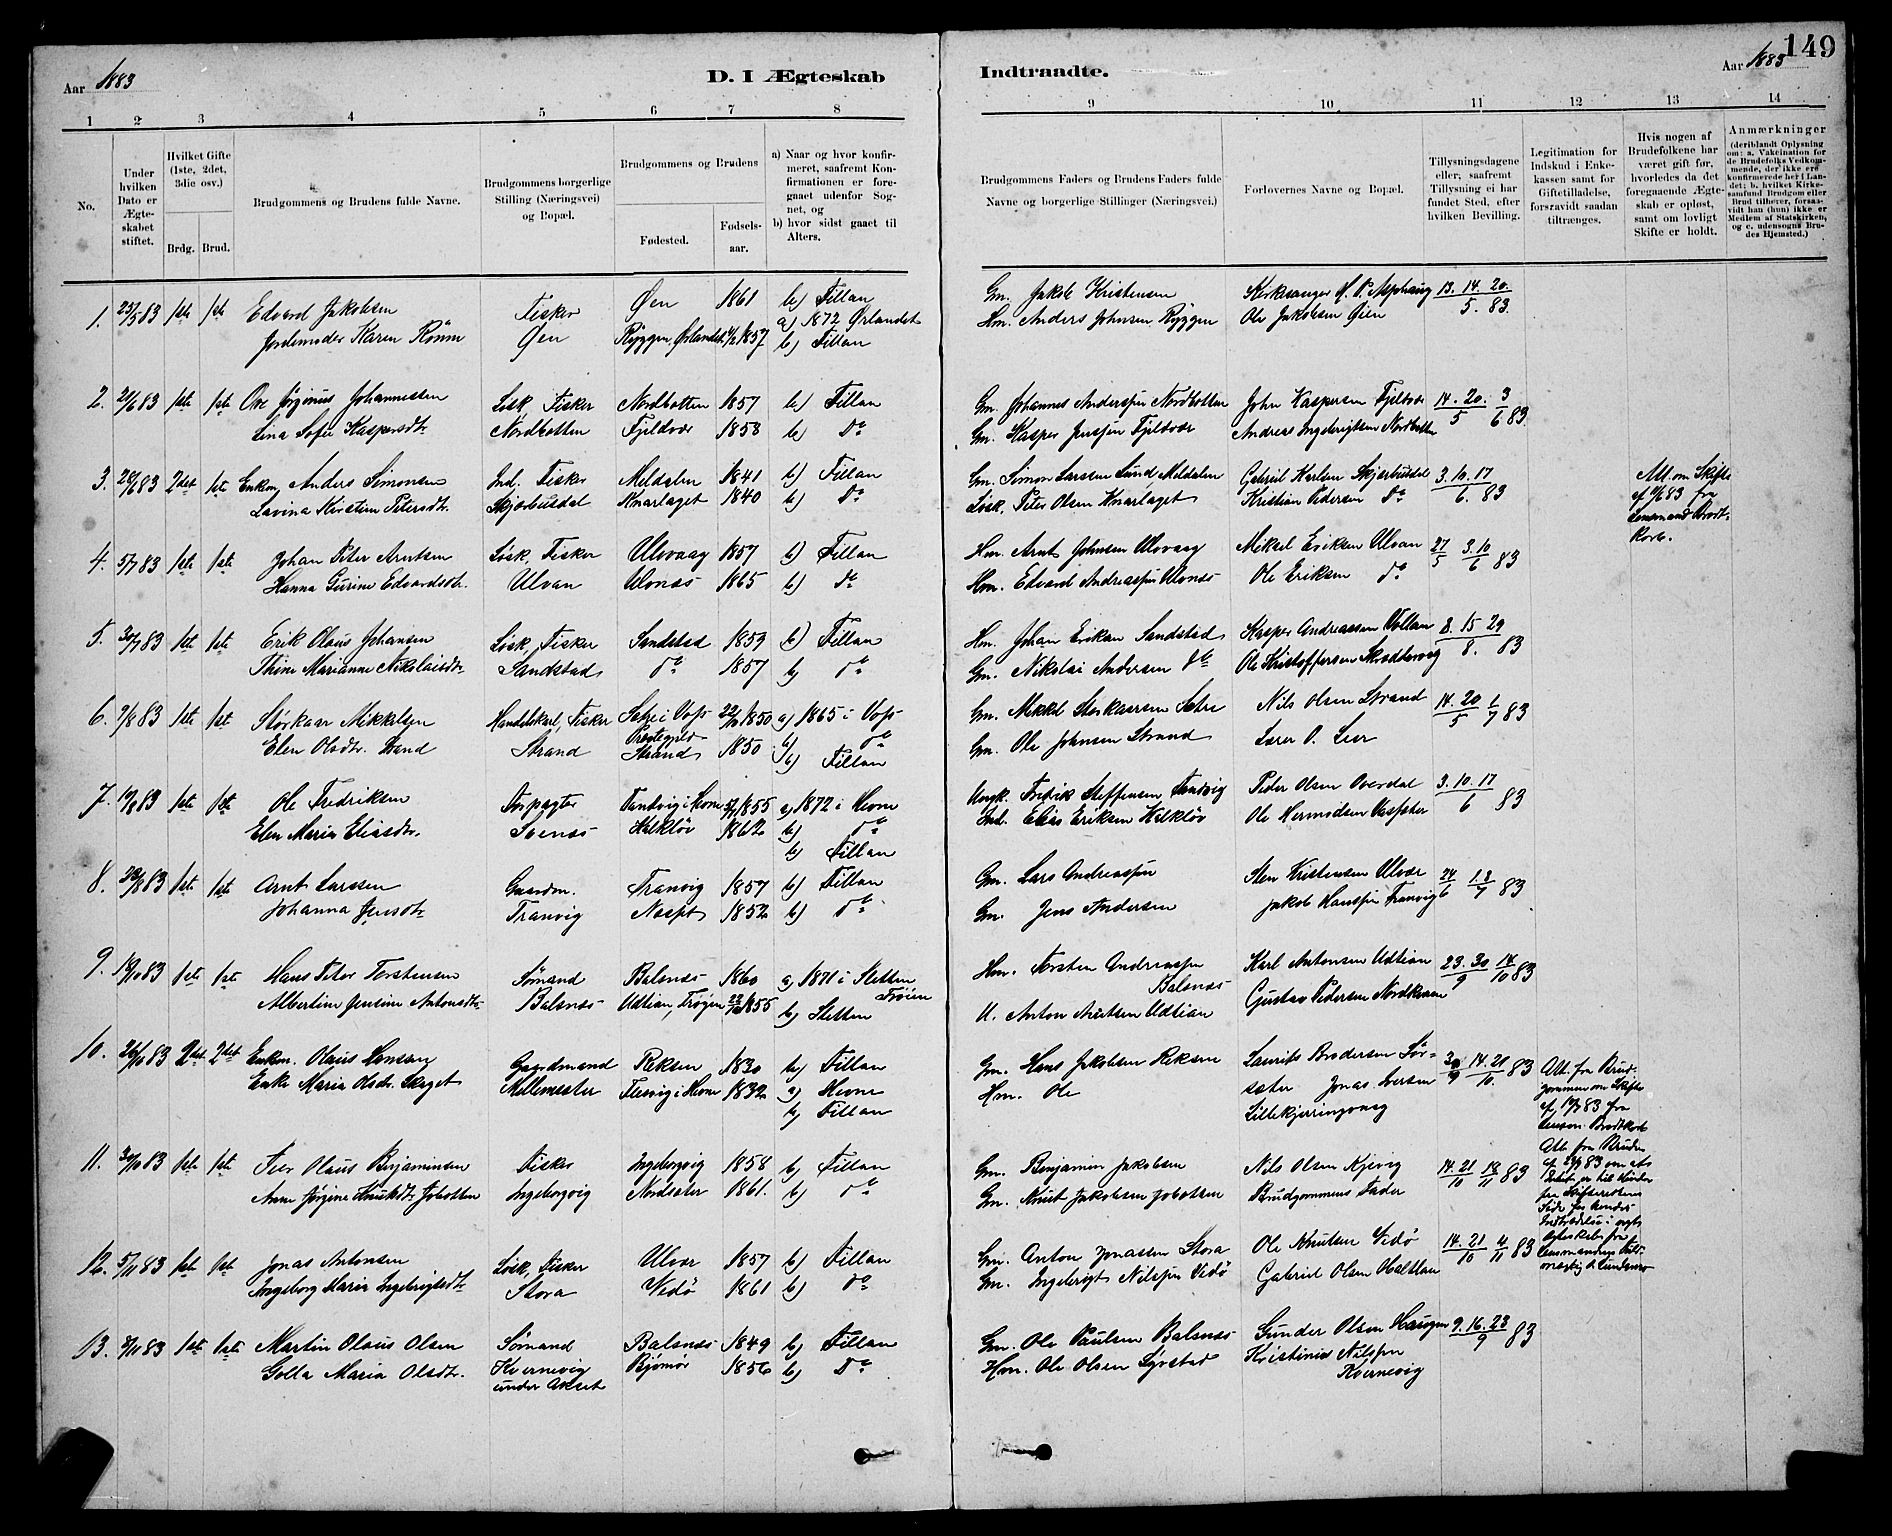 149
Aar 1883
D. I Ægteskab
Indtraadte.
Aar 1883
1 2 3 4 5 6 7 8
9 10 11 12 13 14
No.
Under hvilken Dato er Ægteskabet stiftet.
Hvilket Gifte (1ste, 2det, 3die osv.)
Brdg. Brud.
Brudgommens og Brudens fulde Navne.
Brudgommens borgerlige Stilling (Næringsvei) og Bopæl.
Brudgommens og Brudens
Fødested.
Fødselsaar.
a) Naar og hvor konfirmeret, saafremt Konfirmationen er foregaaet udenfor Sognet, og
b) hvor sidst gaaet til Alters.
Brudgommens Faders og Brudens Faders fulde Navne og borgerlige Stillinger (Næringsvei.)
Forlovernes Navne og Bopæl.
Tillysningsdagene eller; saafremt Tillysning ei har fundet Sted, efter hvilken Bevilling.
Legitimation for Indskud i Enkekassen samt for Giftetilladelse, forsaavidt saadan tiltrænges.
Hvis nogen af Brudefolkene har været gift før, hvorledes da det foregaaende Ægteskab er opløst, samt om lovligt Skifte er holdt.
Anmærkninger (deriblandt Oplysning om: a. Vakcination for de Brudefolks Vedkommende, der ikke ere konfirmerede her i Landet; b. hvilket Kirkesamfund Brudgom eller Brud tilhører, forsaavidt han (hun) ikke er Medlem af Statskirken, og c. udensogns Brudes Hjemsted.)
1. 25/5 83 1ste 1ste Edvard Jakobsen Fisker Øen 1861 b) Fillan Gm. Jakob Kristensen Kirkesanger 13. 14. 20
Jordemoder Karen Rönne Øen Ryggen, Ørlandet 1857 a) 1872 Ørlandet b) Fillan Hm. Anders Johnsen Ryggen Ole Jakobsen Øien 5. 83.
2. 2/6 83 1ste 1ste Ove Jørginus Johannessen Løsk, Fisker Nordbotten 1857 b) Fillan Gm. Johannes Anderssen Nordbotten John Kaspersen Fjeldvær 14. 20. 3
Lina Sofie Kaspersdtr. Nordbotten Fjeldvær 1858 b) Do Gm. Kasper Jenssen Fjeldvær Andreas Ingebrigtsen Nordbotten 5 6 83
3. 20/6 83 2det 1ste Enkem. Anders Simonsen Ind. Fisker Meldalen 1841 b) Fillan Gm. Simon Larssen Lund Meldalen Gabriel Karlsen 3. 10. 17 Att. om Skifte
Lavina Kirstine Petersdtr. Knarlaget 1840 b) Do Løsk. Peter Olsen Knarlaget Kristian Pedersen Do 6. 83 fra Lensmand Brodtkorb.
4. 5/7 83 1ste 1ste Johan Peter Arntsen Løsk, Fisker Ulvvaag 1857 b) Fillan Hm. Arnt Johnsen Ulvvaag Mikal Eriksen Ulvan 27 3. 10
Hanna Gurine Edvardsdtr. Ulvan Ulvnæs 1865 b) do Hm. Edvard Andreassen Ulvnæs Ole Eriksen do 5 6 83
5. 30/7 83 1ste 1ste Erik Olaus Johansen Løsk, Fisker Sandstad 1859 b) Fillan Hm. Johan Eriksen Sandstad Kasper Andreassen Vollan 8. 15 29
Thine Marianne Nikolaisdtr. Sandstad do 1857 b) do Gm. Nikolai Andersen do Ole Kristoffersen 8. 83
6. 9/8 83 1ste 1ste Størkaar Mikkelsen Handelskarl, Fisker Sætre i Voss Præstegjeld 1850 a) 1865 i Voss Gm. Mikkel Størkaarsen Sætre Nils Olsen Strand 14. 20 1
Elen Olsdtr. Strand Strand Strand 1850 b) do b) Fillan Gm. Ole Johnsen Strand Lærer O. Leer 5 7 83
7. 83 1ste 1ste Ole Fredriksen Forpagter Sandvig i Hevne 1855 a) 1872 i Hevne Ungk. Fredrik Steffensen Sandvig Peder Olsen Overdal 3. 10. 17
Elen Maria Eliasdtr. Svenæs Helkløv 1862 b) do b) Fillan Ind. Elias Eriksen Helkløv Ole Hermodsen 6 83
8. 83 1ste 1ste Arnt Larssen Gaardm. Tranvig 1857 b) Fillan Gm. Lars Andreassen Sten Kristensen Ulvær 24 1.8
Johanna Jensdtr. Tranvig 1852 b) do Gm. Jens Andersen Jakob Hanssen Tranvig 6 7 83
9. 83 1ste 1ste Hans Peter Torstensen Sømand Balsnæs 1860 a) 1871 i Sletten Frøien Hm. Torsten Andreassen Balsnæs Karl Antonsen Udtian 23. 30 14
Albertine Jensine Antonsdtr. Balsnæs Udtian, Frøien 1855 b) Sletten U. Anton Arntsen Udtian Gustav Pedersen 9 10 83
10. 26/10 83 2det 2det Enkem. Olaus Hansen Gaardmand Reksen 1830 b) Fillan Gm. Hans Jakobsen Reksen Laurits Brodersen Sørsæter 30 14. 21 Att. fra Brudgommen om Skifte
Enke Maria Olsdtr. 1832 a) Hevne b) Fillan Hm. Ole Jonas Iversen Lillekjerringvaag 9 10. 83 fra Lensm. Brodtkorb
11. 30/10 83 1ste 1ste Peer Olaus Benjaminsen Fisker Ingeborgvig 1858 b) Fillan Gm. Benjamin Jakobsen Nils Olsen Kjevig 14. 21 18
Anne Jørgine Knutsdtr. Jobotten Ingeborgvig Nordsæter 1861. b) do Gm. Knut Jakobsen Jobotten Brudgommens Fader 10 11 83
Att. fra Bruden
12. 5/11 83 1ste 1ste Jonas Antonsen Løsk, Fisker Ulvær 1857 b) Fillan Gm. Anton Jonassen Stora Ole Knutsen Vedø 14. 21 4
Ingeborg Maria Ingebrigtsdtr. Stora Vedø 1861 b) do Gm. Ingebrigt Nilssen Vedø Gabriel Olsen 10 11 83
13. 9/11 83 1ste 1ste Martin Olaus Olsen Sømand Balsnæs 1849 b) Fillan Gm. Ole Paulsen Balsnæs Sunder Olsen Haugen 9. 16. 23
Golla Maria Olsdtr. Kvernevig under Akset Bjørnør 1856 b) Do Hm. Ole Olsen Kristinus Nilssen Kvernevig 9 83